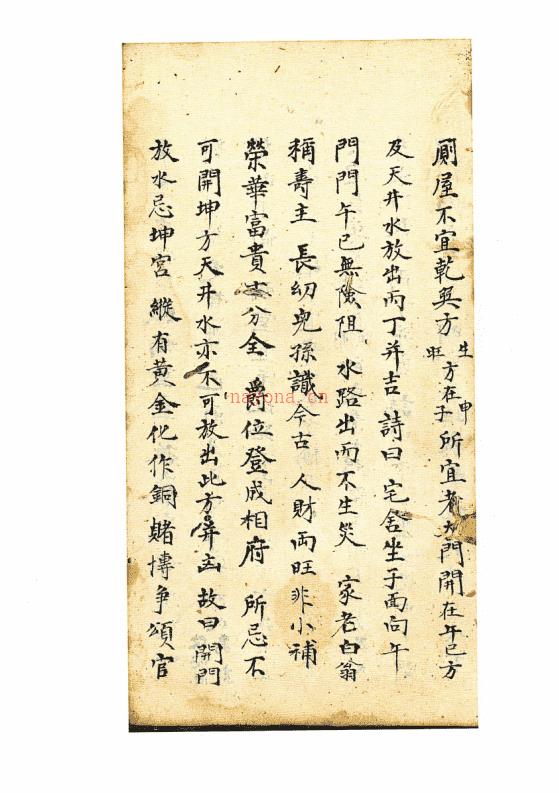 厠屋不宜乾巽方生旺方在申子所宜者大門開在午巳方
及天井水放出丙丁并吉 詩曰 宅舍坐子面向午
門門午巳無險阻 水路出而不生災 家老白翁
稱壽主 長幼兒孫識今古 人財両旺非小補
榮華富貴十分全 爵位登成相府 所忌不
可開坤方天井水亦不可放出此方并凶 故曰 開門
放水忌坤宮 縱有黃金化作銅 賭博爭頌官
nayona.cn